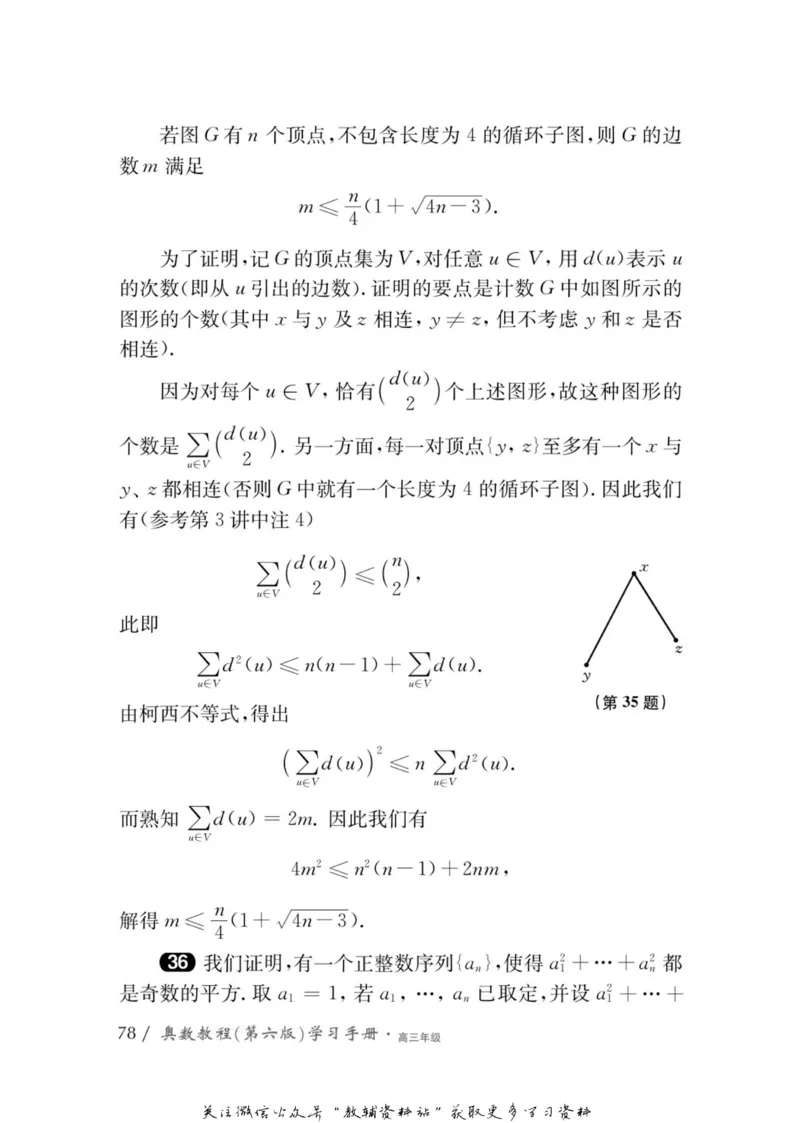 若图G有n 个顶点,不包含长度为 4 的循环子图,则 G 的边
数m 满足
m ≤ n/4 (1+√(4n-3)).
为了证明,记G的顶点集为V,对任意 u∈V, 用 d(u)表示 u
的次数(即从 u 引出的边数). 证明的要点是计数 G 中如图所示的
图形的个数(其中 x 与 y 及 z 相连, y≠z, 但不考虑 y 和 z 是否
相连).
因为对每个 u∈V, 恰有 (d(u) 2) 个上述图形,故这种图形的
个数是 ∑u∈V (d(u) 2). 另一方面,每一对顶点{y, z}至多有一个 x 与
y、z 都相连(否则 G 中就有一个长度为 4 的循环子图). 因此我们
有(参考第 3 讲中注 4)
∑u∈V (d(u) 2) ≤ (n 2),
此即
∑u∈V d²(u) ≤ n(n-1)+∑u∈V d(u).
x
y
z
(第 35 题)
由柯西不等式,得出
(∑u∈V d(u))² ≤ n ∑u∈V d²(u).
而熟知 ∑u∈V d(u) = 2m. 因此我们有
4m² ≤ n²(n-1)+2nm,
解得 m ≤ n/4 (1+√(4n-3)).
36 我们证明,有一个正整数序列{aₙ},使得 a₁²+…+aₙ² 都
是奇数的平方. 取 a₁ = 1, 若 a₁, …, aₙ 已取定,并设 a₁²+…+
78 / 奥数教程(第六版)学习手册·高三年级
关注微信公众号“教辅资料站”获取更多学习资料